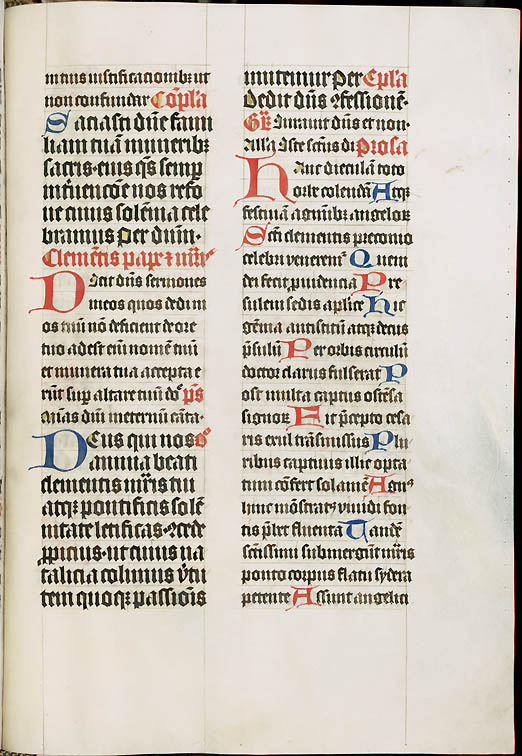 in tuis iustificacionibꝫ ut
non confundar Co͞pl'a
Saciasti dn͞e fami
liam tua͞ muneribꝫ
sacris · eius q͞s semp͛
int͛ue͞co͞e nos refo
ue cuius sole͞nia cele
bramus Per d͞nm ·
Clementis pape ⁊ m͞r
Dicit dn͞s sermones
meos quos dedi in
os tuu͞ no͞ deficient de ore
tuo adest eni͞ nome͞ tuu͞
et munera tua accepta e
ru͞t sup͛ altare tuu͞ d͞o p͞s
Deus qui nos o͞
annua beati
clementis m͞ris tui
atqꝫ pontificis sole͞
nitate letificas · ꝯcede
ꝓpicius · ut cuius na
talicia colimus v͛tu
tem quoqꝫ passio͞is
imitemur Per Ep͞l'a
Dedit dn͞s ꝯfessione͞ ·
Gr͞ Iurauit dn͞s et non ·
All'a Iste sc͞us di Prosa
Hanc dicula͞ toto
corde colenda͞ Atqꝫ
festiua͞ agmi͞bꝫ angeloꝝ
Sc͞i clementis preconio
celebri venerent͛ Quem
dei fecit ꝓuidencia Pre
sulem sedis ap͞lice Hic
ge͞ma antistitu͞ atqꝫ decus
p͛sulu͞ Per orbis circulu͞
doctor clarus fulserat P
ost multa captus oste͞sa
signoꝝ Fit p͛cepto cesa
ris exul tra͞smissus Plu
ribus captiuis illic opta
tum co͞fert solame͞ Agnꝰ
huic mo͞strat͛ viuidi fon
tis p͛bet fluenta Tande͞
se͞tissimi submergu͞t m͞ris
ponto corpus flatu sydera
petente Assunt angelici